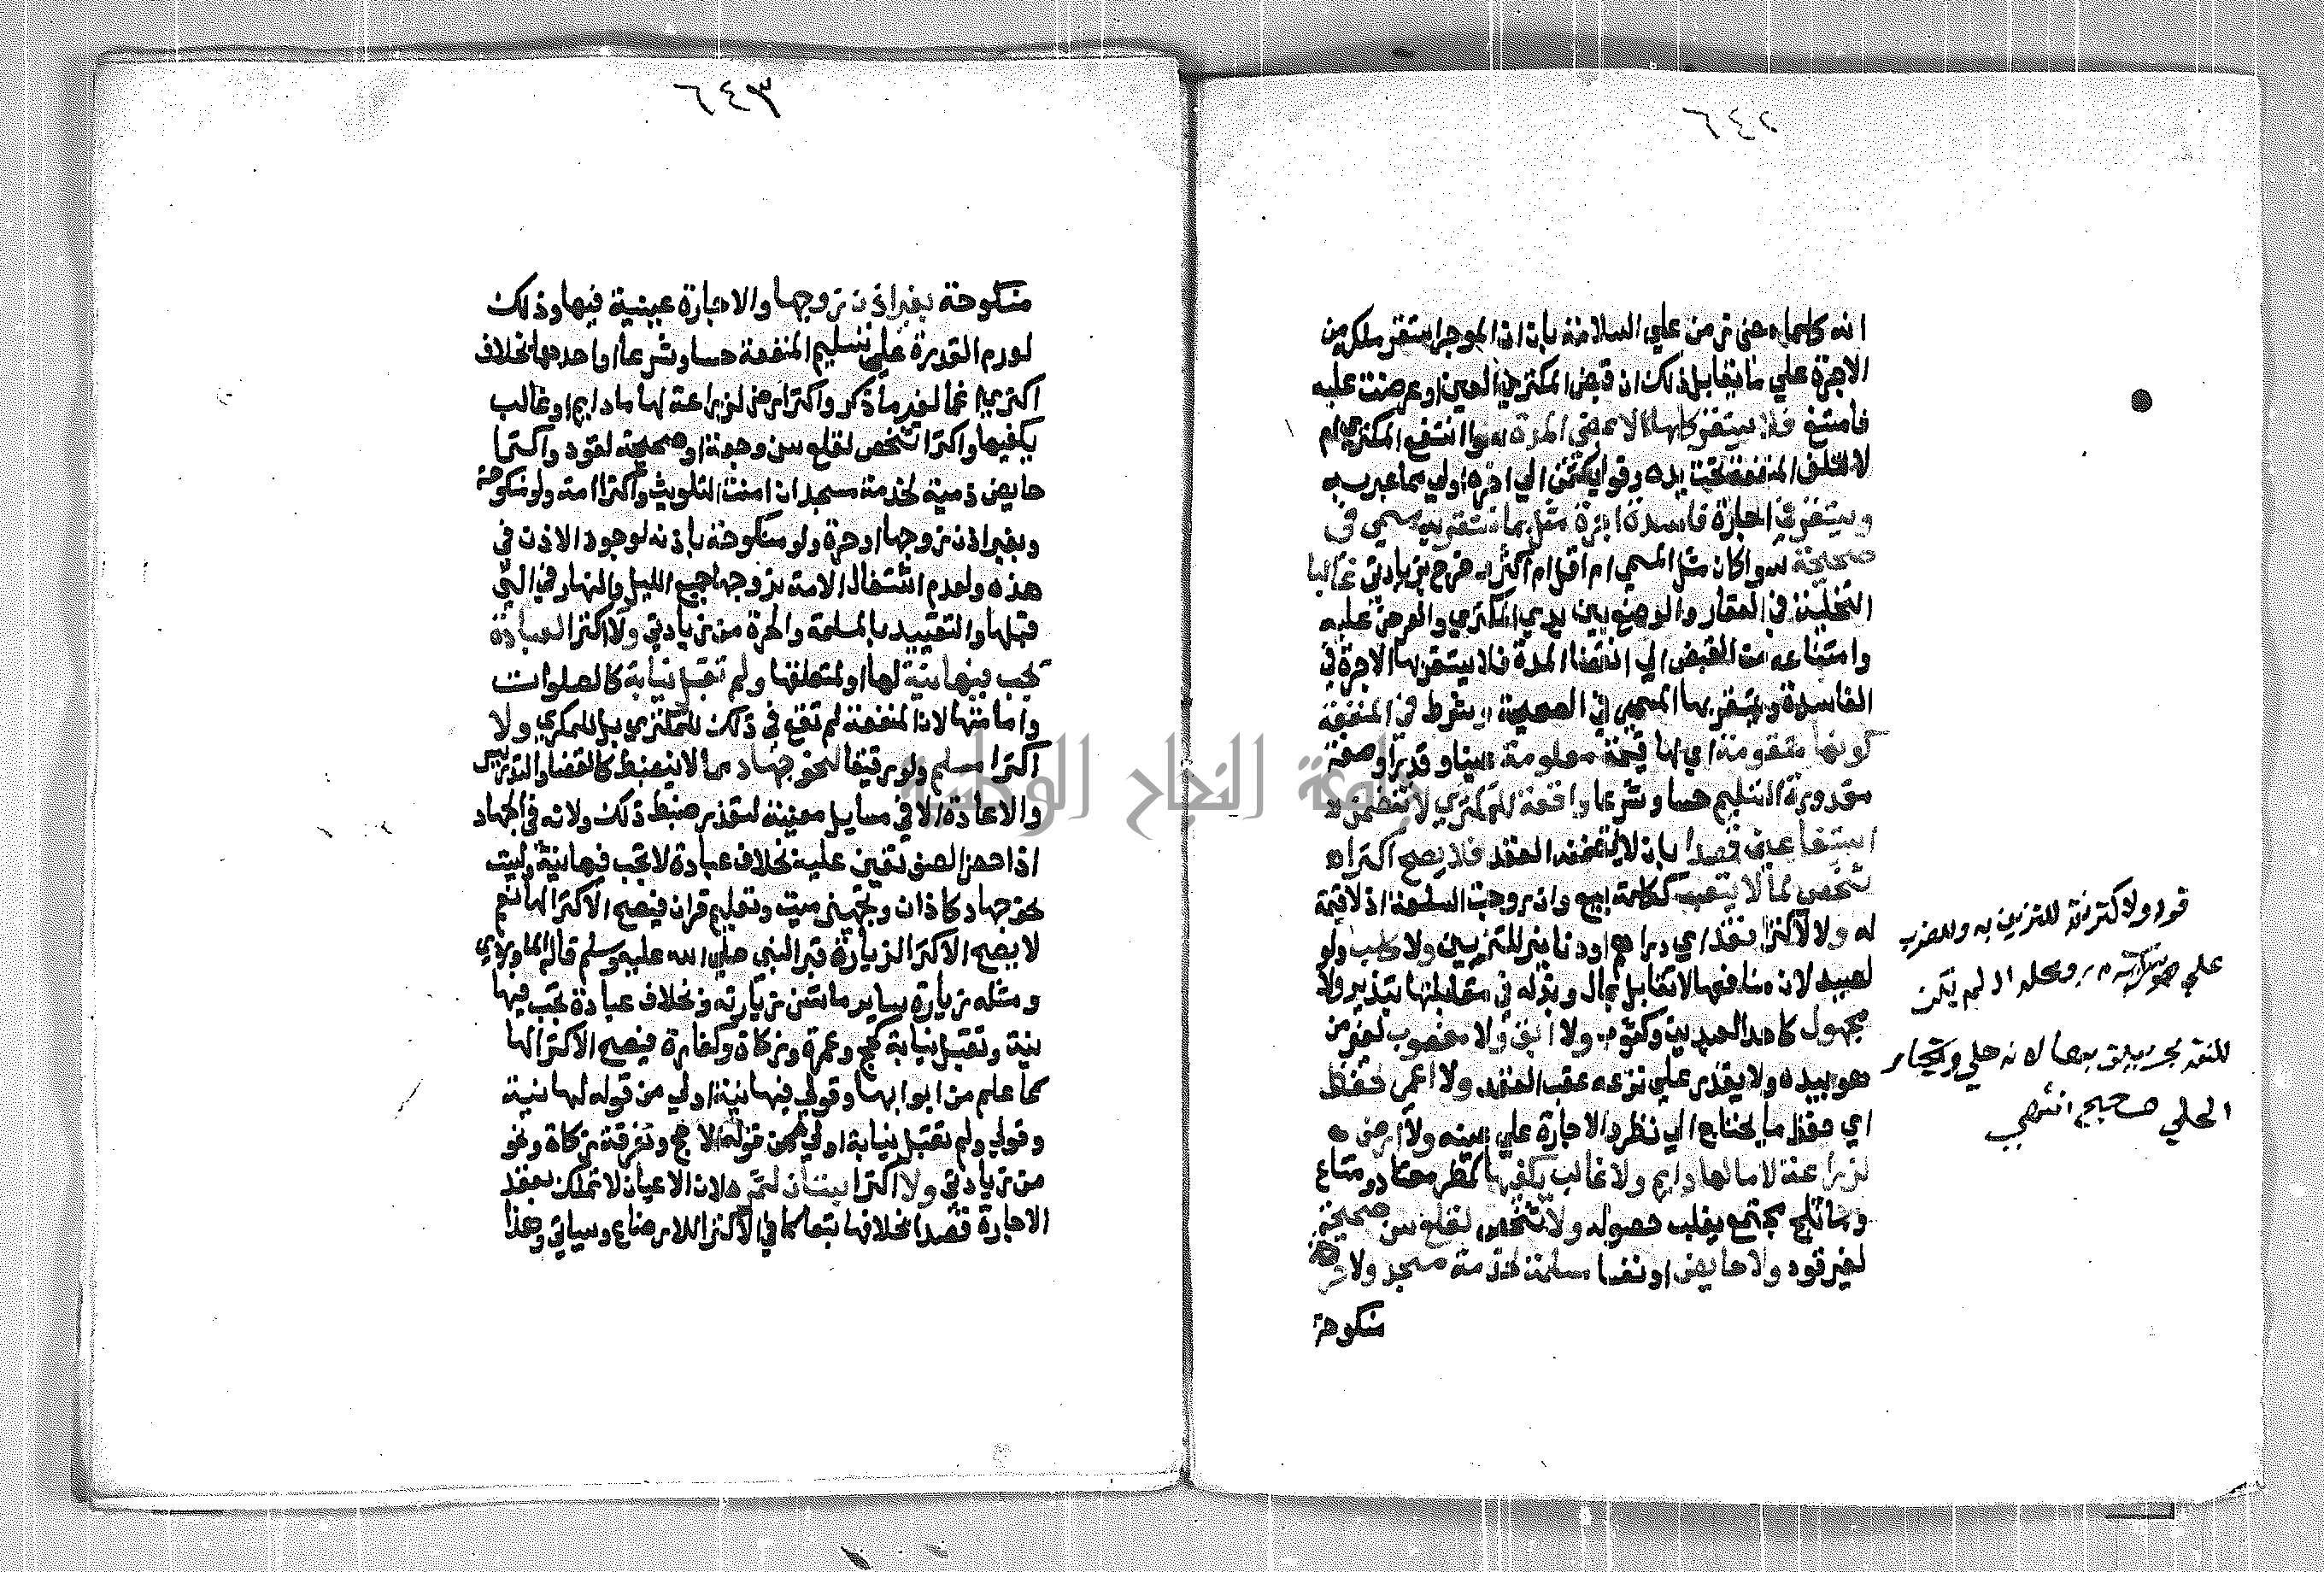 ٦٤٢
انه كلما مضى زمن علي السلامة بان ان الموجر استقر ملكه من
الاجرة علي ما يقابل ذلك ان قبض المكتري العين او عرضت عليه
فامتنع فلا يستقر كلها الا بمضي المدة سوا انتفع المكتري ام
لا لتلف المنفعة تحت يده وقولي كمتن الي اخره اولي مما عبر به
ويستقر في اجارة فاسدة اجرة مثل بما يستقر به مسمي في
صحيحة سوا كان مثل المسمي ام اقل ام اكثر وخرج بزيادتي غالبا
التخلية في العقار والوضع بين يدي المكتري والعرض عليه
وامتناعه من القبض الي انقضا المدة فلا يستقر بها الاجرة في
الفاسدة ويستقر بها المسمي في الصحيحة وشرط في المنفعة
كونها متقومة اي لها قيمة معلومة عينا وقدرا وصفة
مقدورة التسليم حسا وشرعا واقعة للمكتري لا تتضمن
استيفا عين قصدا بان لا يتضمنه العقد فلا يصح اكتراء
شخص لما لا يتعب ككلمة بيع وان روجت السلعة اذ لا قيمة
له ولا لاكترا نقد اي دراهم او دنانير للتزيين ولا كلب ولو
لصيد لان منافعها لا تقابل بمال وبذله في مقابلتها تبذير ولا
مجهول كاحد العبدين وكثوب ولا آبق ولا مغصوب لغير من
هو بيده ولا يقدر علي نزعه عقب العقد ولا اعمي لحفظ
اي حفظ ما يحتاج الي نظر والاجارة علي عينه ولا ارض
لزراعة لا ما لها دايم ولا غالب يكفيها كمطر معتاد وماء
وما ثلج مجتمع يغلب حصوله ولا شخص لقلع سن صحيحة
لغير قود ولا حايض او نفسا مسلمة لخدمة مسجد ولا
منكوحة
قوله ولا كتزينة للتزين به وللضرب
علي ومحله اذ لم يكن
للنقد لانه حلي وايجار
الحلي صحيح انتهي
٦٤٣
منكوحة بغير اذن زوجها والاجارة عينية فيها وذلك
لعدم القدرة علي تسليم المنفعة حسا وشرعا او احدهما بخلاف
اكتري اعمي لغير ما ذكر واكترا ارض لزراعة لها ما دايم او غالب
يكفيها واكترا شخص لقلع سن وجعة او صحيحة لقود واكترا
حايض ذمية لخدمة مسجد ان امنت التلويث واكترا امة ولو منكوحة
وبغير اذن زوجها او حرة ولو منكوحة باذنه لوجود الاذن في
هذه ولعدم اشتغال الامة بزوجها جميع الليل والنهار في التي
قبلها والتقييد بالمسلمة والحرة من زيادتي ولا اكترا لعبادة
تجب فيها نية لها او لمتعلقها ولم تقبل نيابة كالصلوات
وامامتها لان المنفعة لم تقع في ذلك للمكتري بل للمكري ولا
اكترا مسلم ولو رقيقا لنحو جهاد مما لا ينضبط كالقضا والتدريس
والاعادة الا في مسايل معينة لتعذر ضبط ذلك ولانه في الجهاد
اذا حضر الصف تعين عليه بخلاف عبادة لا تجب فيها نية وليست
نحو جهاد كاذان وتجهيز ميت وتعليم قران فيصح الاكترا لها نعم
لا يصح الاكترا لزيارة قبر النبي صلي الله عليه وسلم قاله الماوردي
ومثله زيارة ساير ما تسن زيارته وبخلاف عبادة تجب فيها
نية وتقبل نيابة كحج وعمرة وزكاة وكفارة فيصح الاكترا لها
كما علم من ابوابها وقولي فيها نية اولي من قوله لها نية
وقولي ولم تقبل نيابة اولي من قوله الا حج وتفرقة زكاة ونحو
من زيادتي ولا اكترا بستان لثمره لان الاعيان لا تملك بعقد
الاجارة قصدا بخلافها تبعا كما في الاكترا للارضاع وسياتي وهذا
جامعة النجاح الوطنية